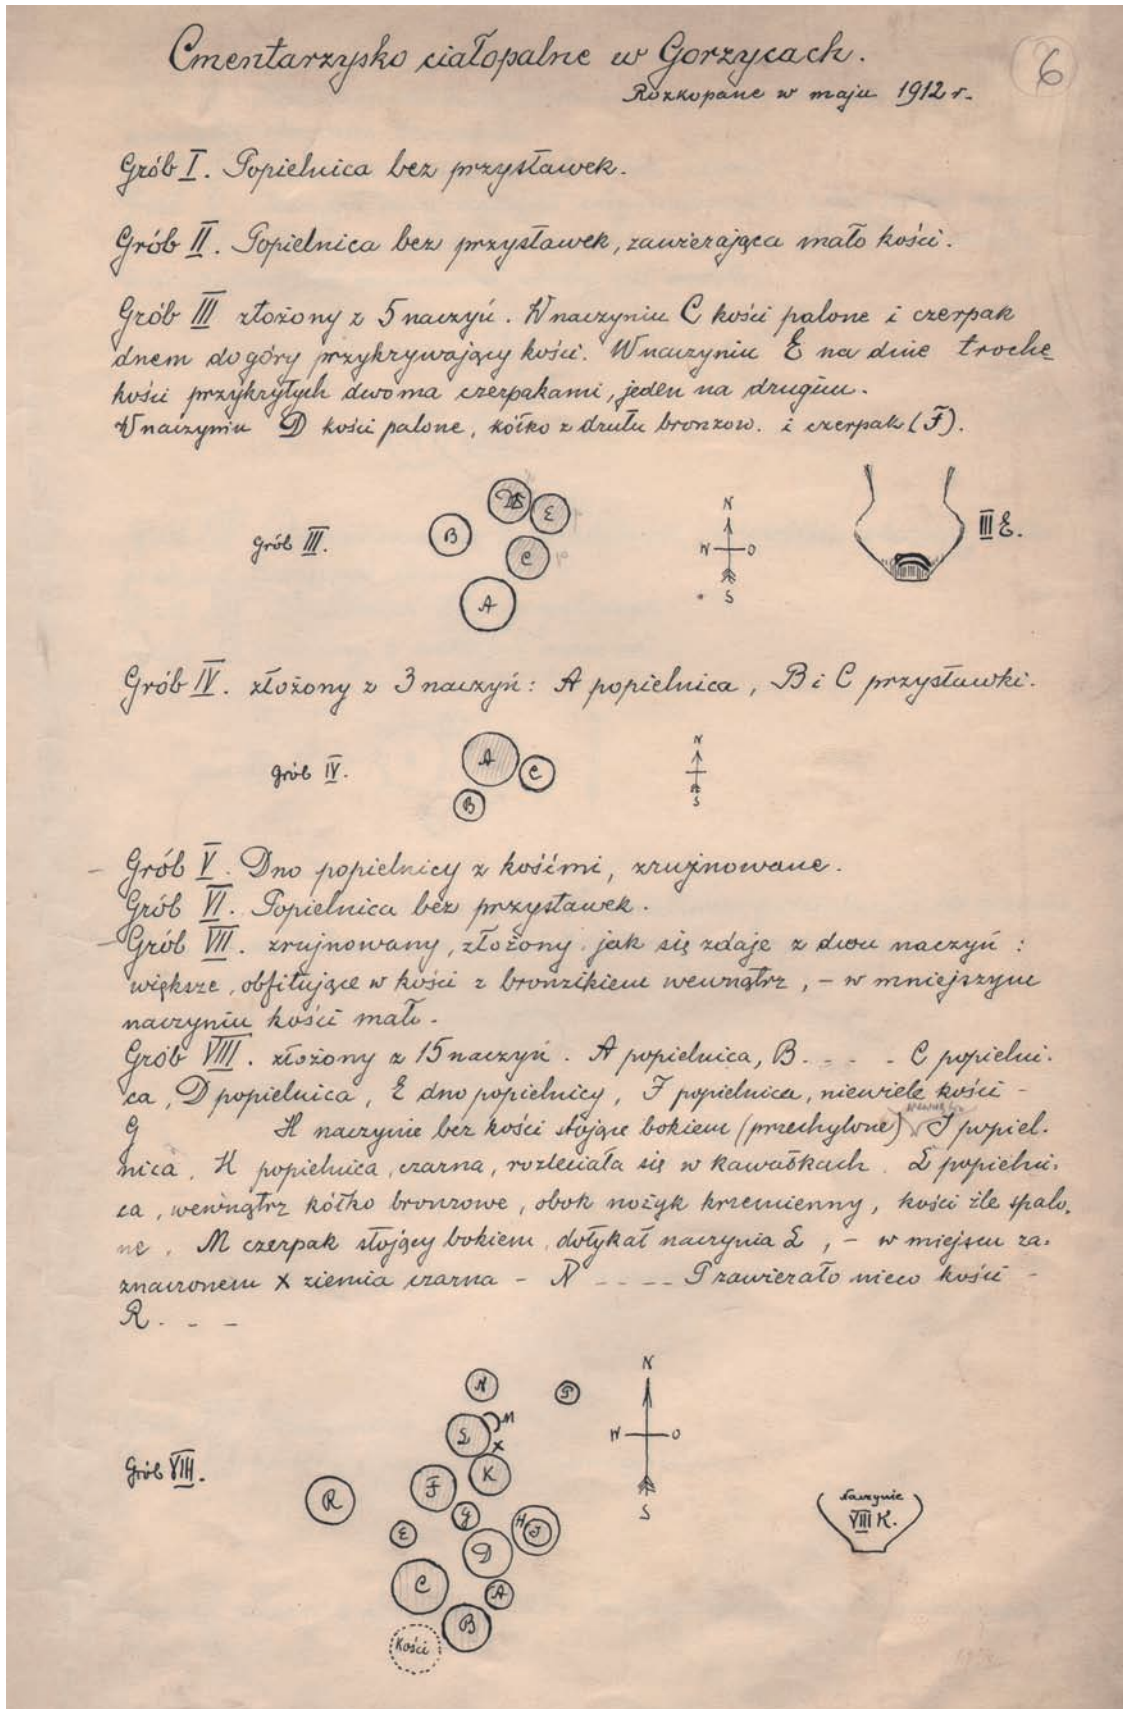 Cmentarzysko ciałopalne w Gorzycach.
6
Rozkopane w maju 1912 r.
Grób I. Popielnica bez przystawek.
Grób II. Popielnica bez przystawek, zawierająca mało kości.
Grób III złożony z 5 naczyń. W naczyniu C kości palone i czerpak
dnem do góry przykrywający kości. W naczyniu E na dnie trochę
kości przykrytych dwoma czerpakami, jeden na drugim.
W naczyniu D kości palone, kółko z drutu bronzow. i czerpak (F).
Grób III.
D
E
B
C
A
N
W O
S
III E.
Grób IV. złożony z 3 naczyń: A popielnica, B i C przystawki.
Grób IV.
A
C
B
N
S
- Grób V. Dno popielnicy z kośćmi, zrujnowane.
Grób VI. Popielnica bez przystawek.
- Grób VII. zrujnowany, złożony jak się zdaje z dwu naczyń:
większe, obfitujące w kości z bronzikiem wewnątrz, - w mniejszym
naczyniu kości mało.
Grób VIII. złożony z 15 naczyń. A popielnica, B. - - - C popielni-
ca, D popielnica, E dno popielnicy, F popielnica, niewiele kości -
G H naczynie bez kości stojące bokiem (przechylone) J popiel-
nica, K popielnica, czarna, rozleciała się w kawałkach. L popielni-
ca, wewnątrz kółko bronzowe, obok nożyk krzemienny, kości źle spalo-
ne. M czerpak stojący bokiem, dotykał naczynia L, - w miejscu za-
znaczonem x ziemia czarna - N - - - - P zawierało nieco kości -
R. - -
Grób VIII.
N
P
M
L
x
K
F
R
G
H
J
E
D
C
A
B
Kości
N
W O
S
Naczynie
VIII K.